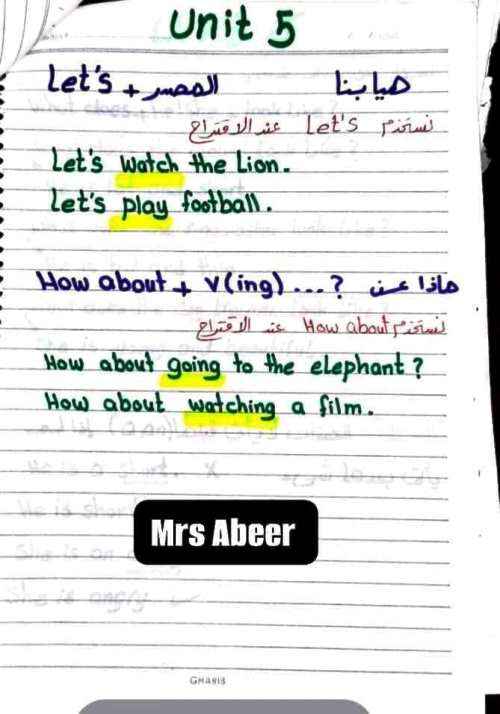 Unit 5
Let's + المصدر هيا بنا
نستخدم Let's عند الاقتراح
Let's watch the Lion.
Let's play football.
How about + v(ing) ...? ماذا عن
نستخدم How about عند الاقتراح
How about going to the elephant?
How about watching a film.
He is a short. X
He is short
She is an
She is angry
Mrs Abeer
GHARIB